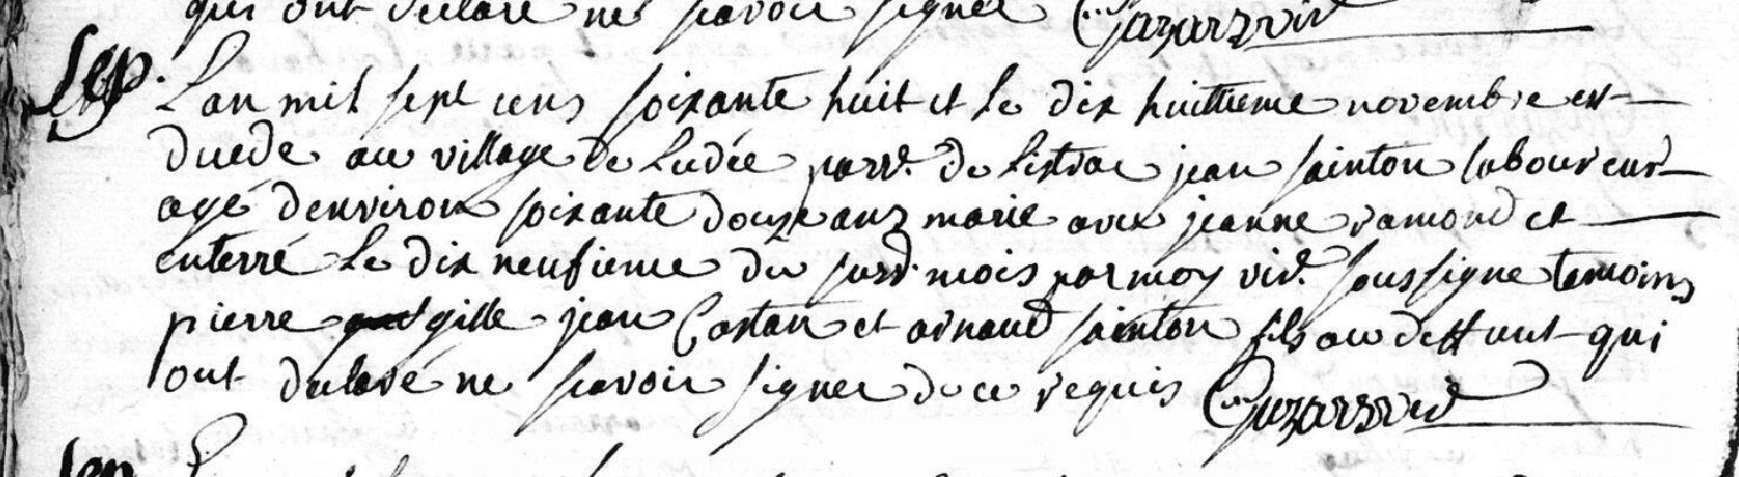 qui ont declare ne scavoir signer
Sep. L'an mil sept cens soixante huit et le dix huittieme novembre est
dúcéde au village de Ludée parr. de Listrac jean sainton laboureur
agé d'environ soixante douze anz marié avec jeanne ramond et
enterré le dix neufieme du susd. mois par moy vic. soussigne temoins
pierre gille jean Castan et arnaud sainton fils au deffunt qui
ont declaré ne scavoir signer de ce requis